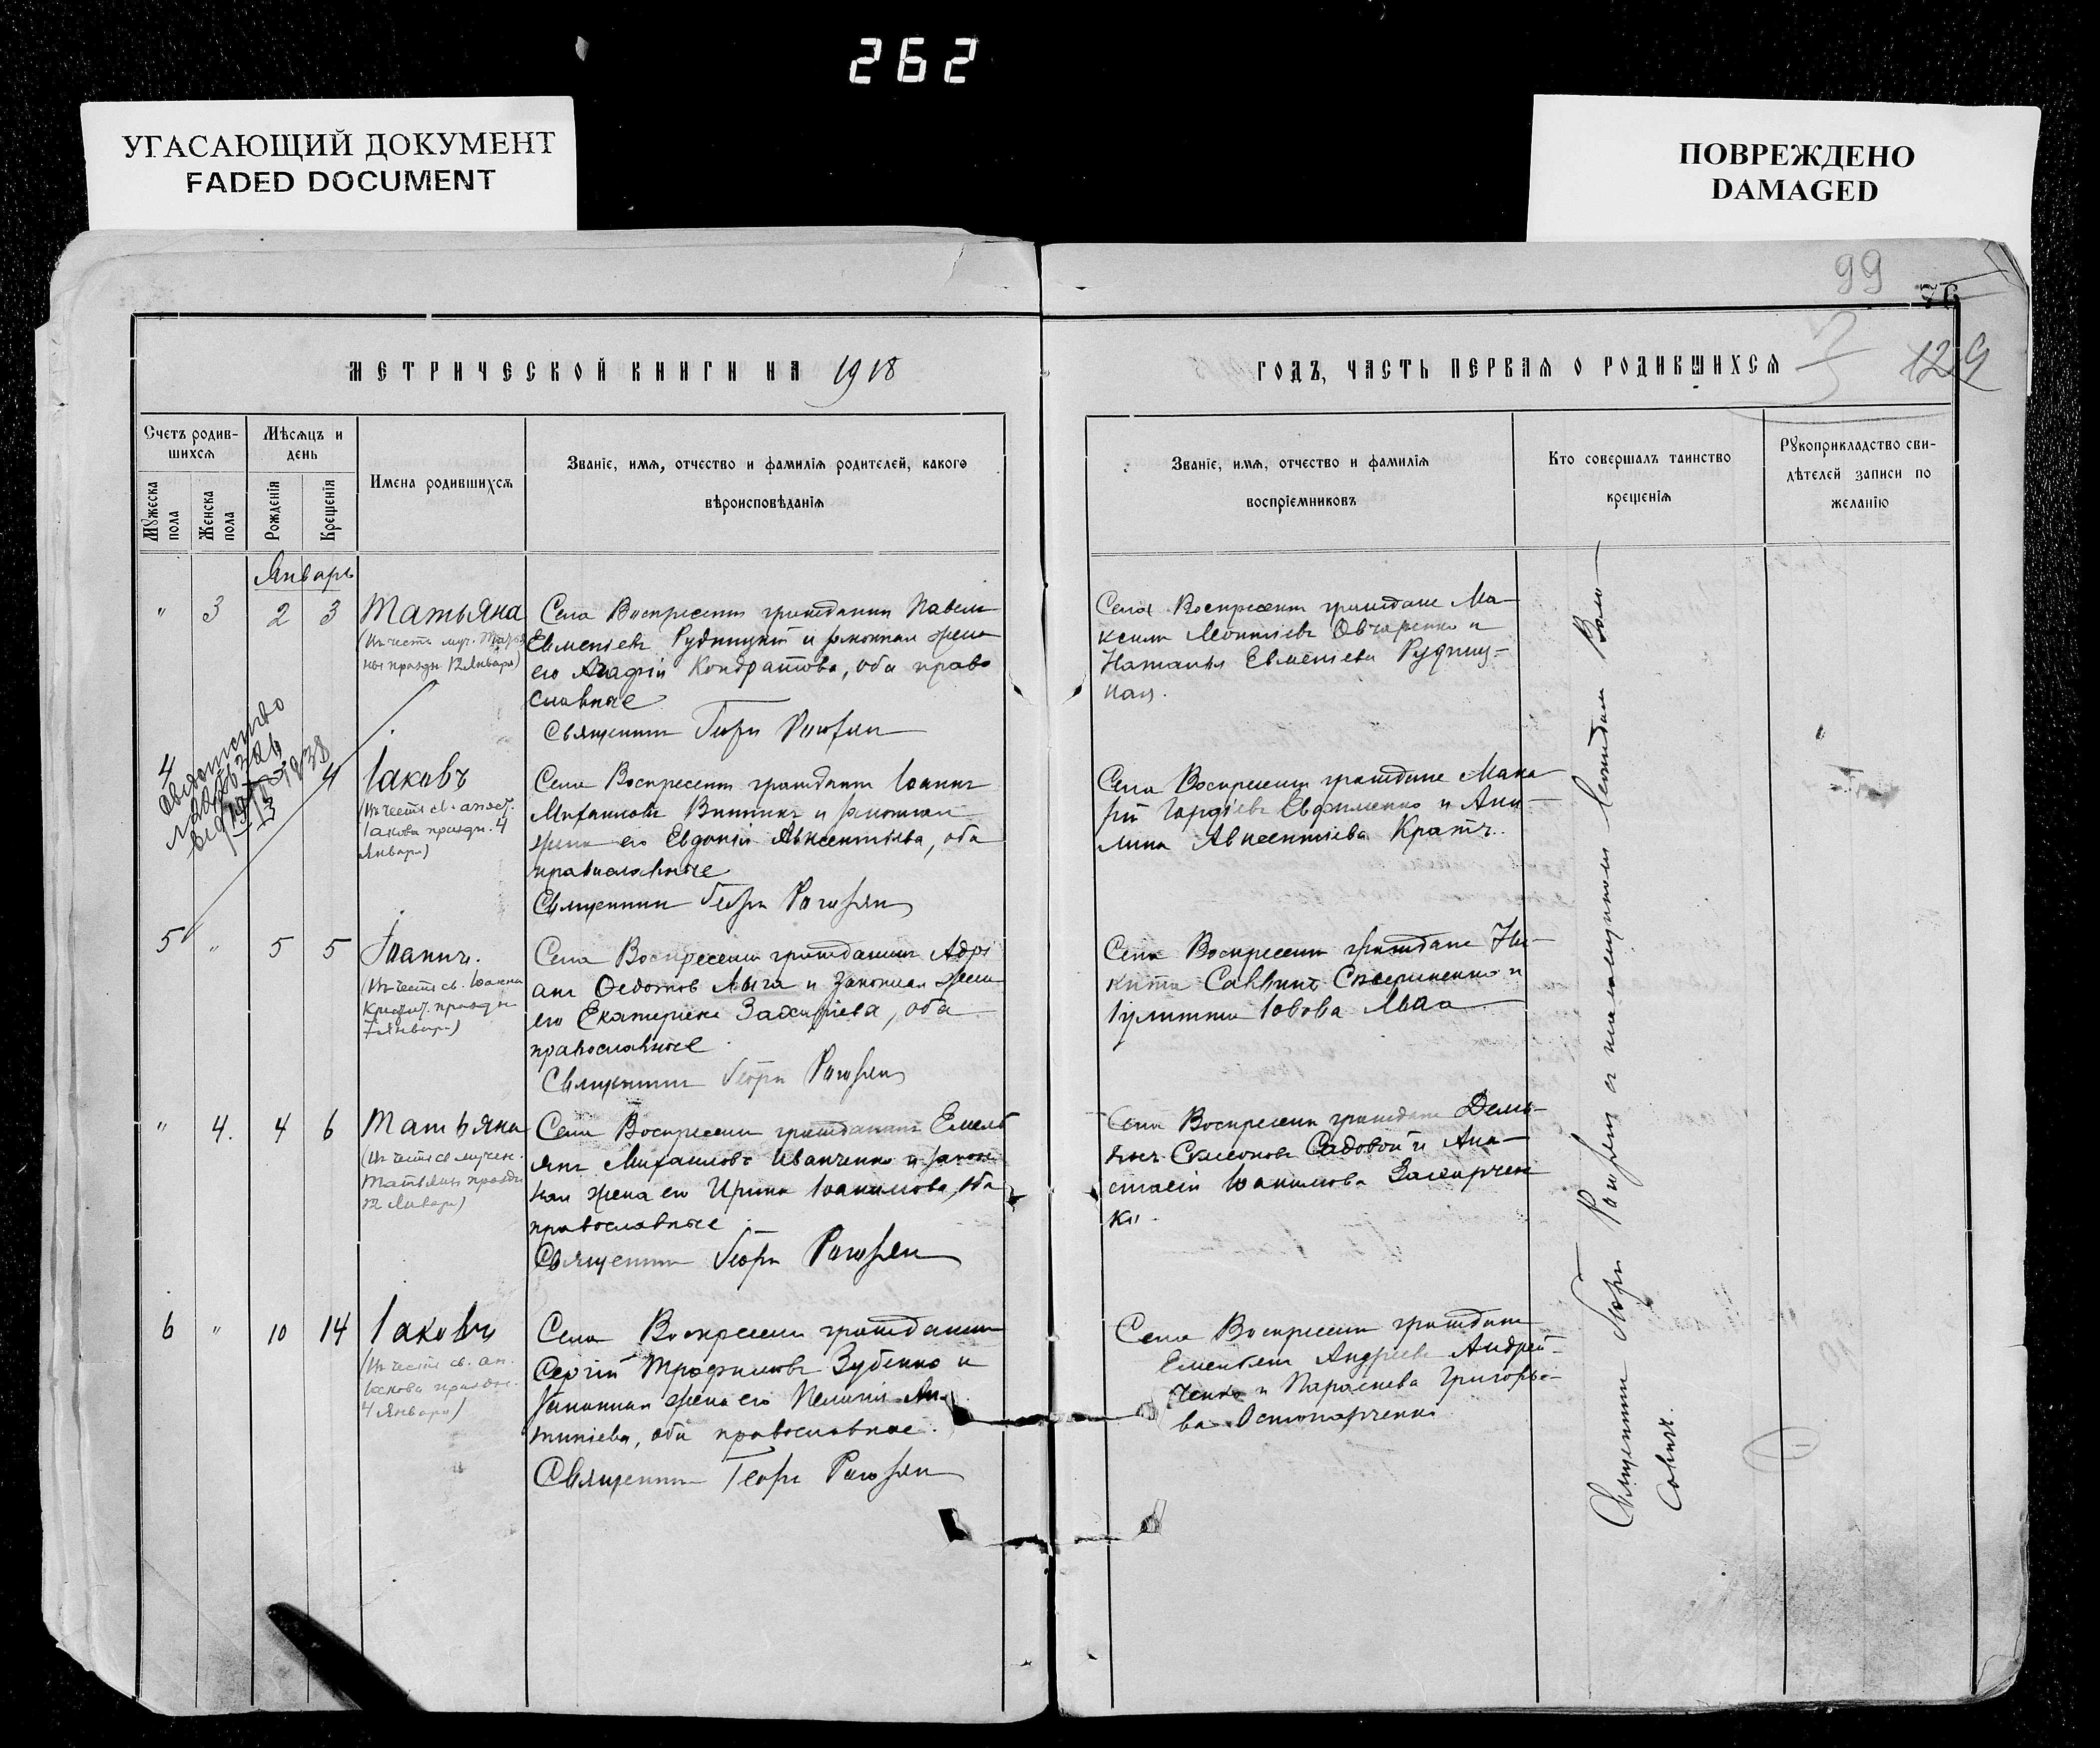 262
УГАСАЮЩИЙ ДОКУМЕНТ
FADED DOCUMENT
ПОВРЕЖДЕНО
DAMAGED
99
76
129
МЕТРИЧЕСКОЙ КНИГИ НА 1918
ГОДЪ, ЧАСТЬ ПЕРВАЯ О РОДИВШИХСЯ
Счетъ родив-
шихся
Мѣсяцъ и
день
Мужеска
пола
Женска
пола
Рожденія
Крещенія
Имена родившихся
Званіе, имя, отчество и фамилія родителей, какого
вѣроисповѣданія
Званіе, имя, отчество и фамилія
воспріемниковъ
Кто совершалъ таинство
крещенія
Рукоприкладство сви-
дѣтелей записи по
желанію
Январь
" 3 2 3 Татьяна
(Въ честь муч. Татья
ны праздн. 12 Января)
Села Воскресенки гражданинъ Павелъ
Евменіевъ Рудницкій и законная жена
его Агафія Кондратова, оба право
славные
Священникъ Георгій
Села Воскресенки граждане Ма-
ксимъ Леонтіевъ Овчаренко и
Наталія Евменіева Рудниц-
кая.
4
4 Іаковъ
(Въ честь св. апост.
Іакова праздн. 4
Января)
1938
Села Воскресенки гражданинъ Іоаннъ
Михаиловъ и законная
жена его Евдокія Авксентіева, оба
православные
Священникъ Георгій
Села Воскресенки граждане Мака
рій Гордіевъ Евфименко и Аки-
лина Авксентіева Кратъ.
5 " 5 5 Іоаннъ.
(Въ честь св. Іоанна
Крестит. праздн.
7 Января)
Села Воскресенки гражданинъ Адрі
анъ Федотовъ Лыга и законная жена
его Екатерина Захаріева, оба
православные
Священникъ Георгій
Села Воскресенки граждане Ни-
кита Саввинъ и
Іулитта Іовова
" 4. 4 6 Татьяна
(Въ честь св. мучен.
Татьяны праздн.
12 Января)
Села Воскресенки гражданинъ Емель
янъ Михаиловъ Иванченко и закон
ная жена его Ирина Іоакимова, оба
православные
Священникъ Георгій
Села Воскресенки граждане Демь-
янъ Симеоновъ Садовой и Ана-
стасія Іоакимова
ко.
6 " 10 14 Іаковъ
(Въ честь св. ап.
Іакова праздн.
4 Января)
Села Воскресенки гражданинъ
Сергій Трофимовъ Зубенко и
законная жена его Пелагія Ан-
тиніева, оба православные.
Священникъ Георгій
Села Воскресенки граждане
Емельянъ Андреевъ Андрей-
ченко и Параскева Григорье-
ва Остапарченко
Священникъ Георгій съ псаломщикомъ Леонидомъ